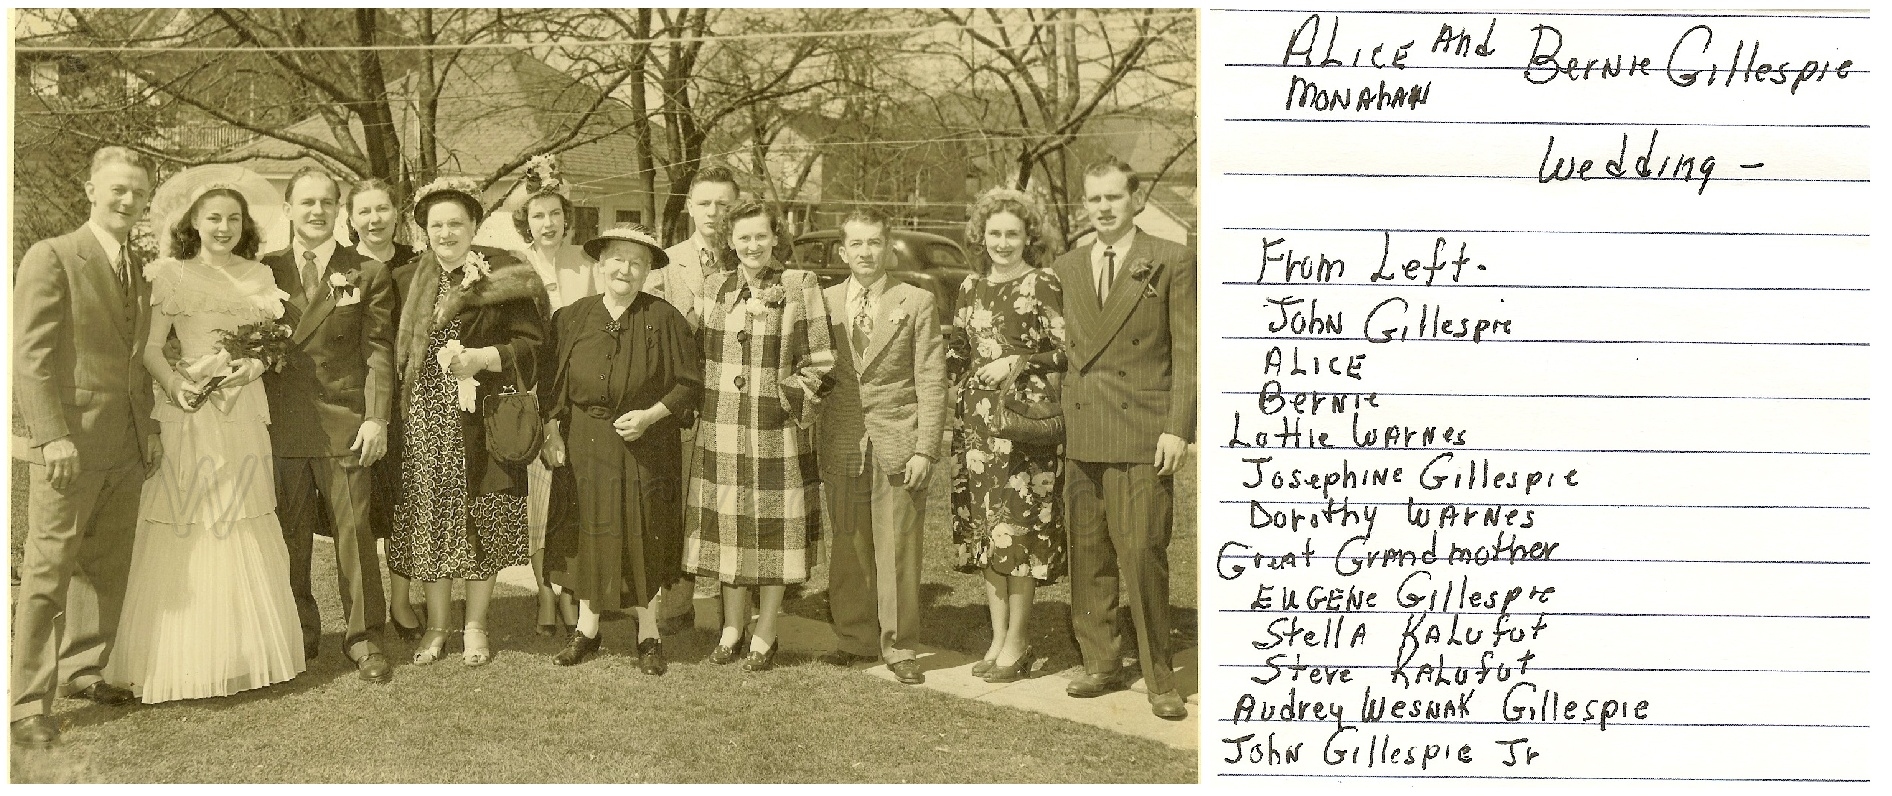 ALICE And Bernie Gillespie
Monahan
Wedding -
From Left.
John Gillespie
ALICE
Bernie
Lottie Warnes
Josephine Gillespie
Dorothy Warnes
Great Grandmother
Eugene Gillespie
Stella Kalufut
Steve Kalufut
Audrey Wesnak Gillespie
John Gillespie Jr